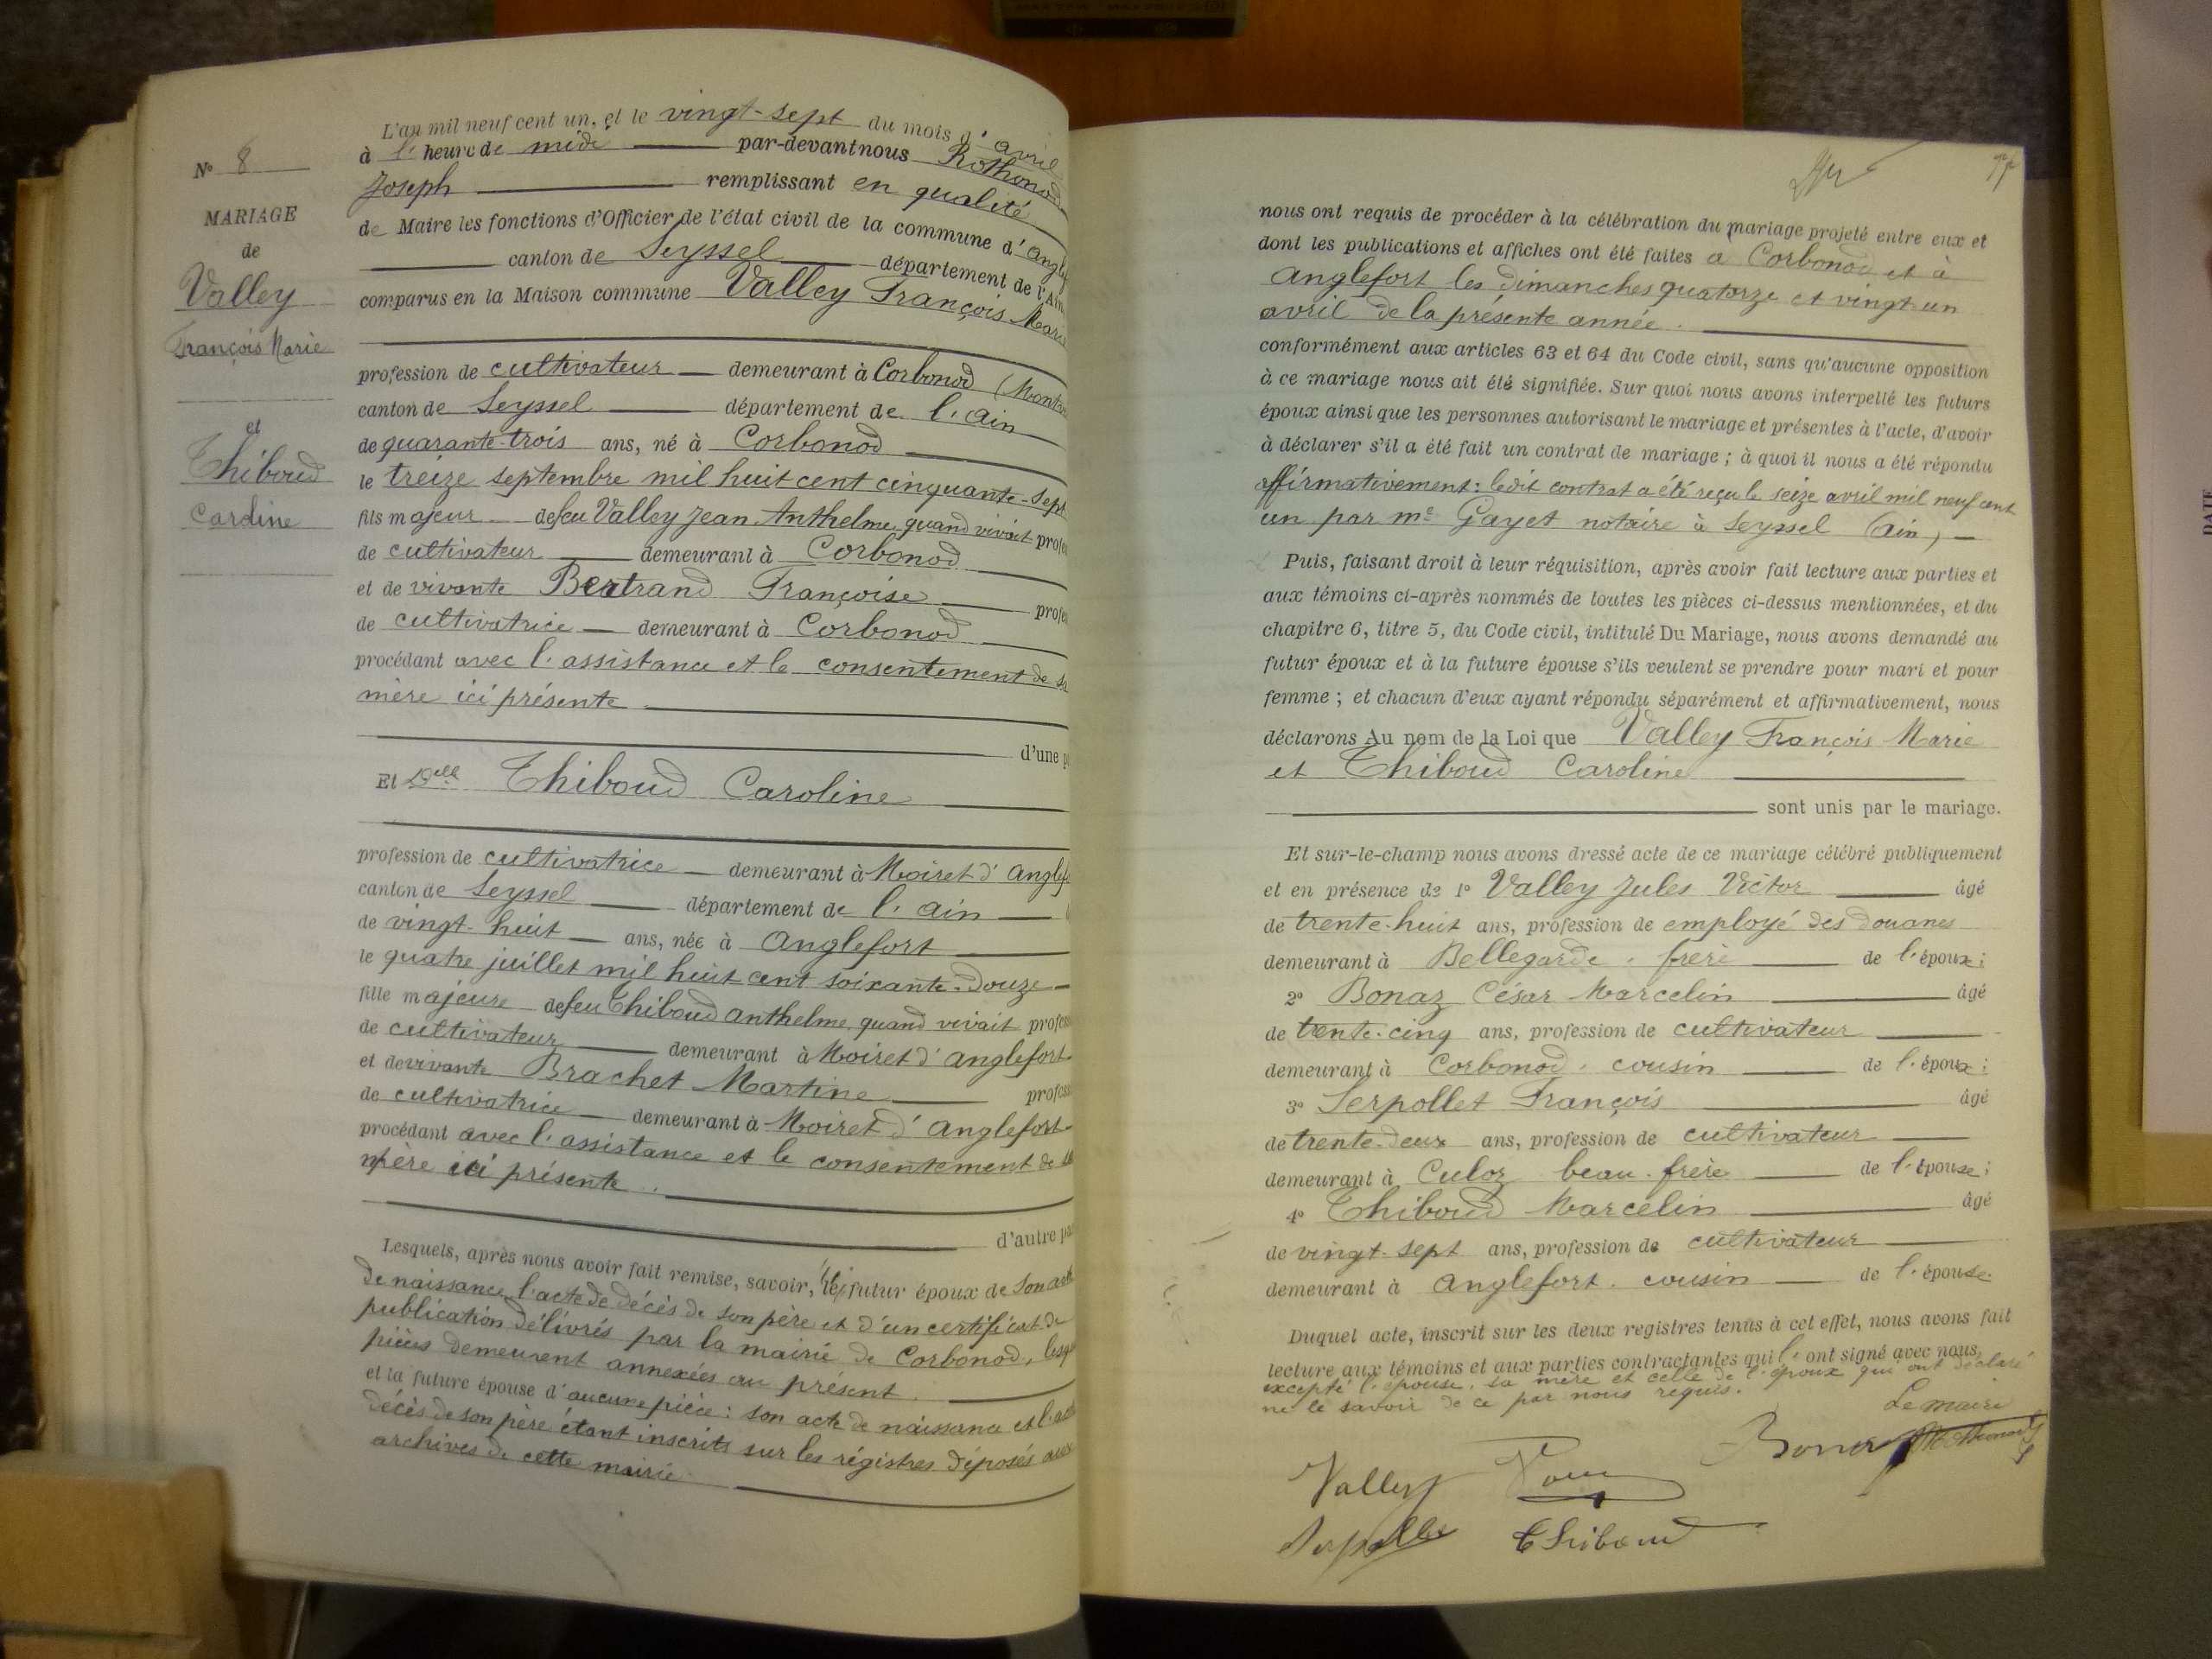 N° 8
MARIAGE
de
Valley
François Marie
et
Thiboud
Caroline
L'an mil neuf cent un, et le vingt-sept du mois d'avril
à l'heure de midi par-devant nous Rothonod
Joseph remplissant en qualité
de Maire les fonctions d'Officier de l'état civil de la commune d'Angl
canton de Seyssel département de l'Ain
comparus en la Maison commune Valley François Marie
profession de cultivateur demeurant à Corbonod
canton de Seyssel département de l'Ain
de quarante-trois ans, né à Corbonod
le treize septembre mil huit cent cinquante-sept
fils majeur de feu Valley Jean Anthelme, quand vivait profes
de cultivateur demeurant à Corbonod
et de vivante Bertrand Françoise profes
de cultivatrice demeurant à Corbonod
procédant avec l'assistance et le consentement de sa
mère ici présente
d'une p
Et Delle Thiboud Caroline
profession de cultivatrice demeurant à Moiret d'Anglef
canton de Seyssel département de l'Ain
de vingt-huit ans, née à Anglefort
le quatre juillet mil huit cent soixante-douze
fille majeure de feu Thiboud Anthelme, quand vivait profess
de cultivateur demeurant à Moiret d'Anglefort
et de vivante Brachet Martine profess
de cultivatrice demeurant à Moiret d'Anglefort
procédant avec l'assistance et le consentement de sa
mère ici présente.
d'autre pa
Lesquels, après nous avoir fait remise, savoir, le futur époux de son acte
de naissance, l'acte de décès de son père et d'un certificat de
publication délivrés par la mairie de Corbonod, lesq
pièces demeurent annexées au présent.
et la future épouse d'aucune pièce : son acte de naissance et l'acte
décès de son père étant inscrits sur les régistres déposés aux
archives de cette mairie
77
nous ont requis de procéder à la célébration du mariage projeté entre eux et
dont les publications et affiches ont été faites à Corbonod et à
Anglefort les dimanches quatorze et vingt-un
avril de la présente année.
conformément aux articles 63 et 64 du Code civil, sans qu'aucune opposition
à ce mariage nous ait été signifiée. Sur quoi nous avons interpellé les futurs
époux ainsi que les personnes autorisant le mariage et présentes à l'acte, d'avoir
à déclarer s'il a été fait un contrat de mariage ; à quoi il nous a été répondu
affirmativement : ledit contrat a été reçu le seize avril mil neuf cent
un par me Gayet notaire à Seyssel (Ain)
Puis, faisant droit à leur réquisition, après avoir fait lecture aux parties et
aux témoins ci-après nommés de toutes les pièces ci-dessus mentionnées, et du
chapitre 6, titre 5, du Code civil, intitulé Du Mariage, nous avons demandé au
futur époux et à la future épouse s'ils veulent se prendre pour mari et pour
femme ; et chacun d'eux ayant répondu séparément et affirmativement, nous
déclarons Au nom de la Loi que Valley François Marie
et Thiboud Caroline
sont unis par le mariage.
Et sur-le-champ nous avons dressé acte de ce mariage célébré publiquement
et en présence de 1° Valley Jules Victor âgé
de trente-huit ans, profession de employé des douanes
demeurant à Bellegarde, frère de l'époux ;
2° Bonaz César Marcelin âgé
de trente-cinq ans, profession de cultivateur
demeurant à Corbonod, cousin de l'époux ;
3° Serpollet François âgé
de trente-deux ans, profession de cultivateur
demeurant à Culoz beau-frère de l'épouse ;
4° Thiboud Marcelin âgé
de vingt-sept ans, profession de cultivateur
demeurant à Anglefort, cousin de l'épouse.
Duquel acte, inscrit sur les deux registres tenus à cet effet, nous avons fait
lecture aux témoins et aux parties contractantes qui l'ont signé avec nous,
excepté l'épouse, sa mère et celle de l'époux qui ont déclaré
ne le savoir de ce par nous requis.
Le maire
Rothonod
Valley
Thiboud
DATE